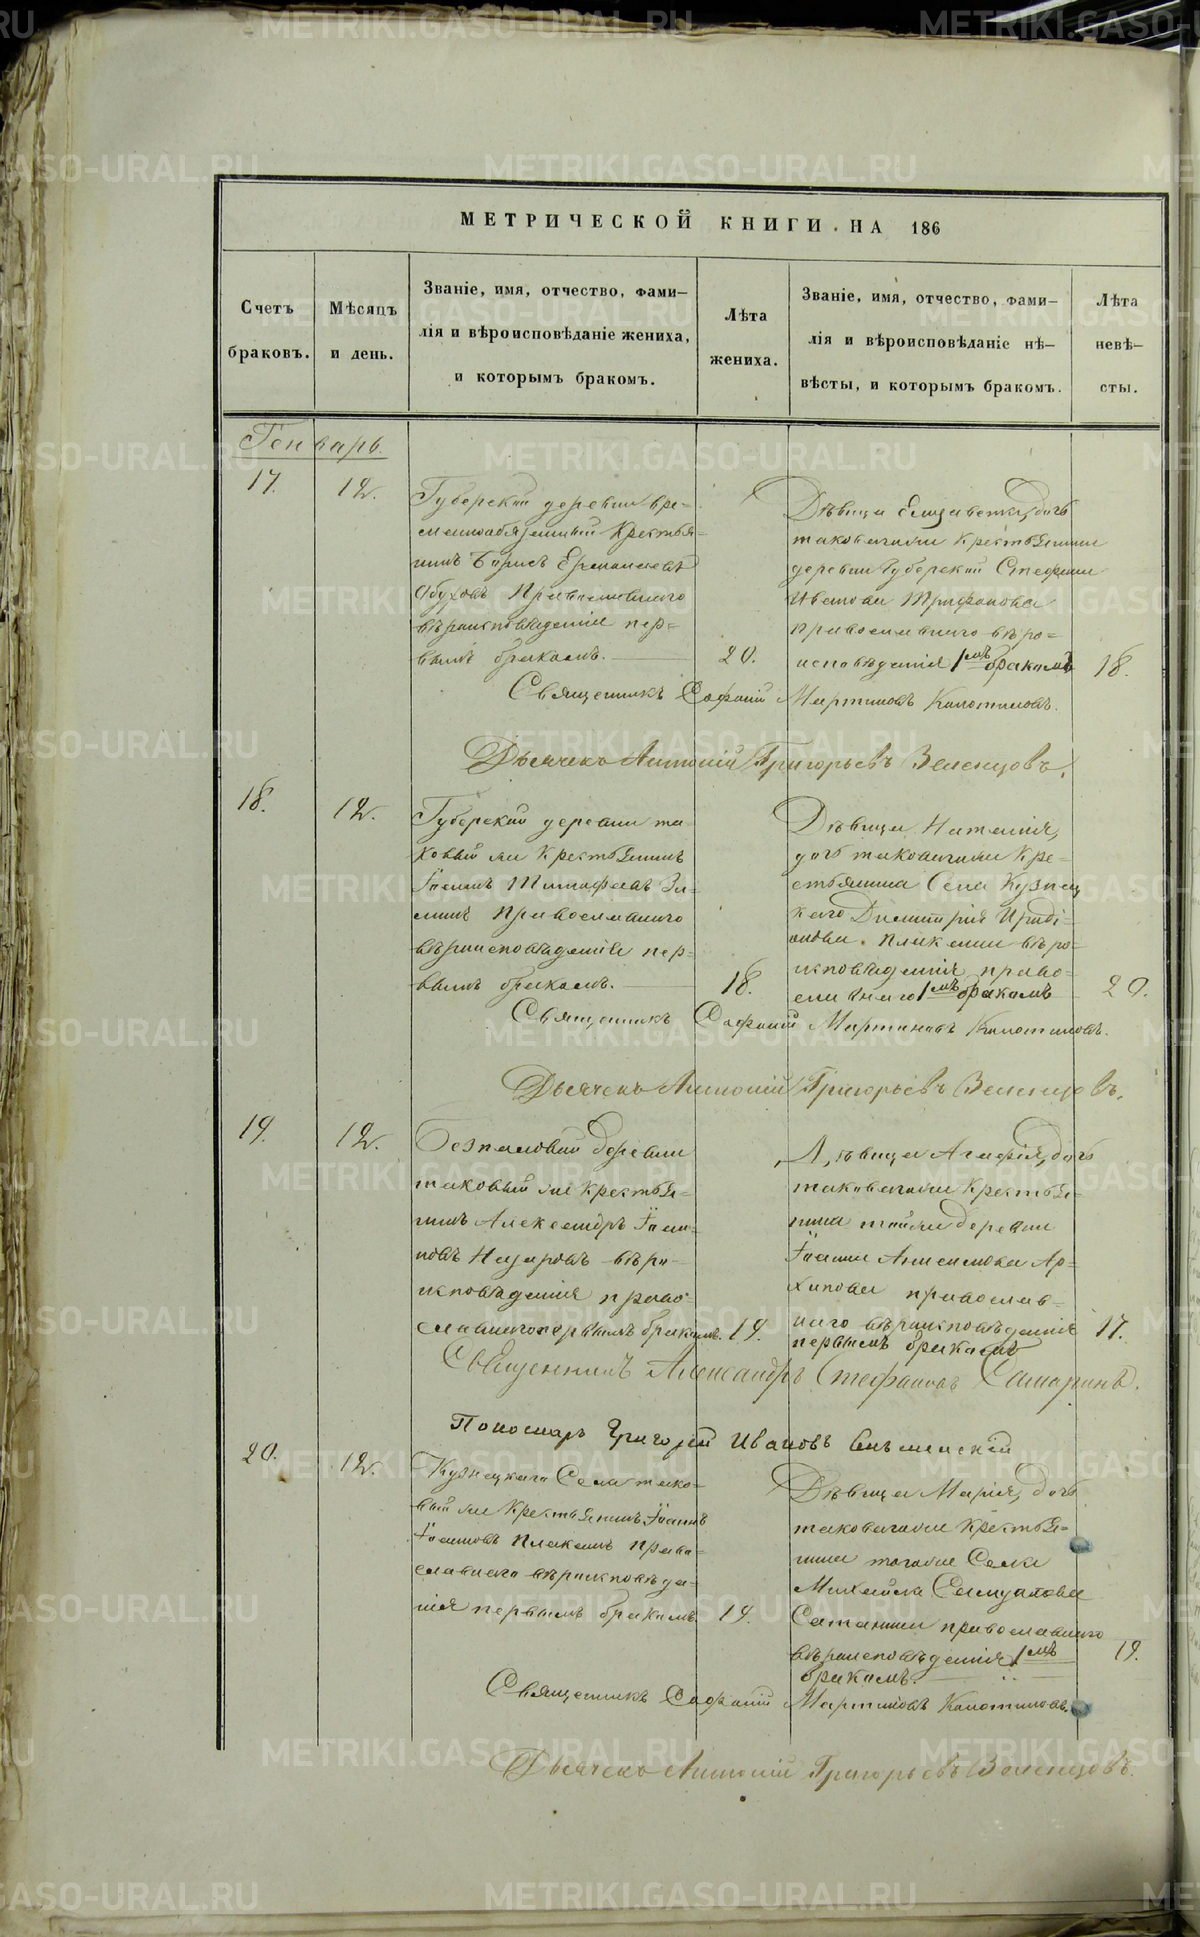 МЕТРИЧЕСКОЙ КНИГИ НА 186
Счетъ браковъ.
Мѣсяцъ и день.
Званіе, имя, отчество, фами-
лія и вѣроисповѣданіе жениха,
и которымъ бракомъ.
Лѣта жениха.
Званіе, имя, отчество, фами-
лія и вѣроисповѣданіе не-
вѣсты, и которымъ бракомъ.
Лѣта невѣ-
сты.
Генварь.
17.
12.
Губерской деревни вре-
меннообязанный Крестья-
нинъ Борисъ
Обуховъ Православнаго
вѣроисповѣданія пер-
вымъ бракомъ.
20.
Дѣвица Елизавета, дочь
таковагоже Крестьянина
деревни Губерской Стефана
Иванова Трифонова
православнаго вѣро-
исповѣданія 1мъ бракомъ
18.
Священникъ Софоній Мартиновъ
Дьячекъ Антоній Григорьевъ Зеленцовъ.
18.
12.
Губерской деревни та
ковый же Крестьянинъ
Іоаннъ Тимофеевъ Зи-
минъ Православнаго
вѣроисповѣданія пер-
вымъ бракомъ.
18.
Дѣвица Наталія,
дочь таковагоже Кре-
стьянина Села Кузнец
каго Димитрія Ироді-
онова Плаксина вѣро-
исповѣданія право-
славнаго 1мъ бракомъ
20.
Священникъ Софоній Мартиновъ
Дьячекъ Антоній Григорьевъ Зеленцовъ.
19.
12.
деревни
таковый же Крестья-
нинъ Александръ Іоан-
новъ Назаровъ вѣро-
исповѣданія право-
славнаго первымъ бракомъ.
19.
Дѣвица Агафія, дочь
таковагоже Крестья-
нина тойже деревни
Іоанна Анисимова Ар-
хипова православ-
наго вѣроисповѣданія
первымъ бракомъ
17.
Священникъ Александръ Стефановъ Самаринъ.
Пономарь Григорій Ивановъ
20.
12.
Кузнецкаго Села тако-
вый же Крестьянинъ Іоаннъ
Іоанновъ Плаксинъ Право-
славнаго вѣроисповѣда-
нія первымъ бракомъ
19.
Дѣвица Марія, дочь
таковагоже Крестья-
нина тогоже Села
Михаила
православнаго
вѣроисповѣданія 1мъ
бракомъ.
19.
Священникъ Софоній Мартиновъ
Дьячекъ Антоній Григорьевъ Зеленцовъ.
METRIKI.GASO-URAL.RU